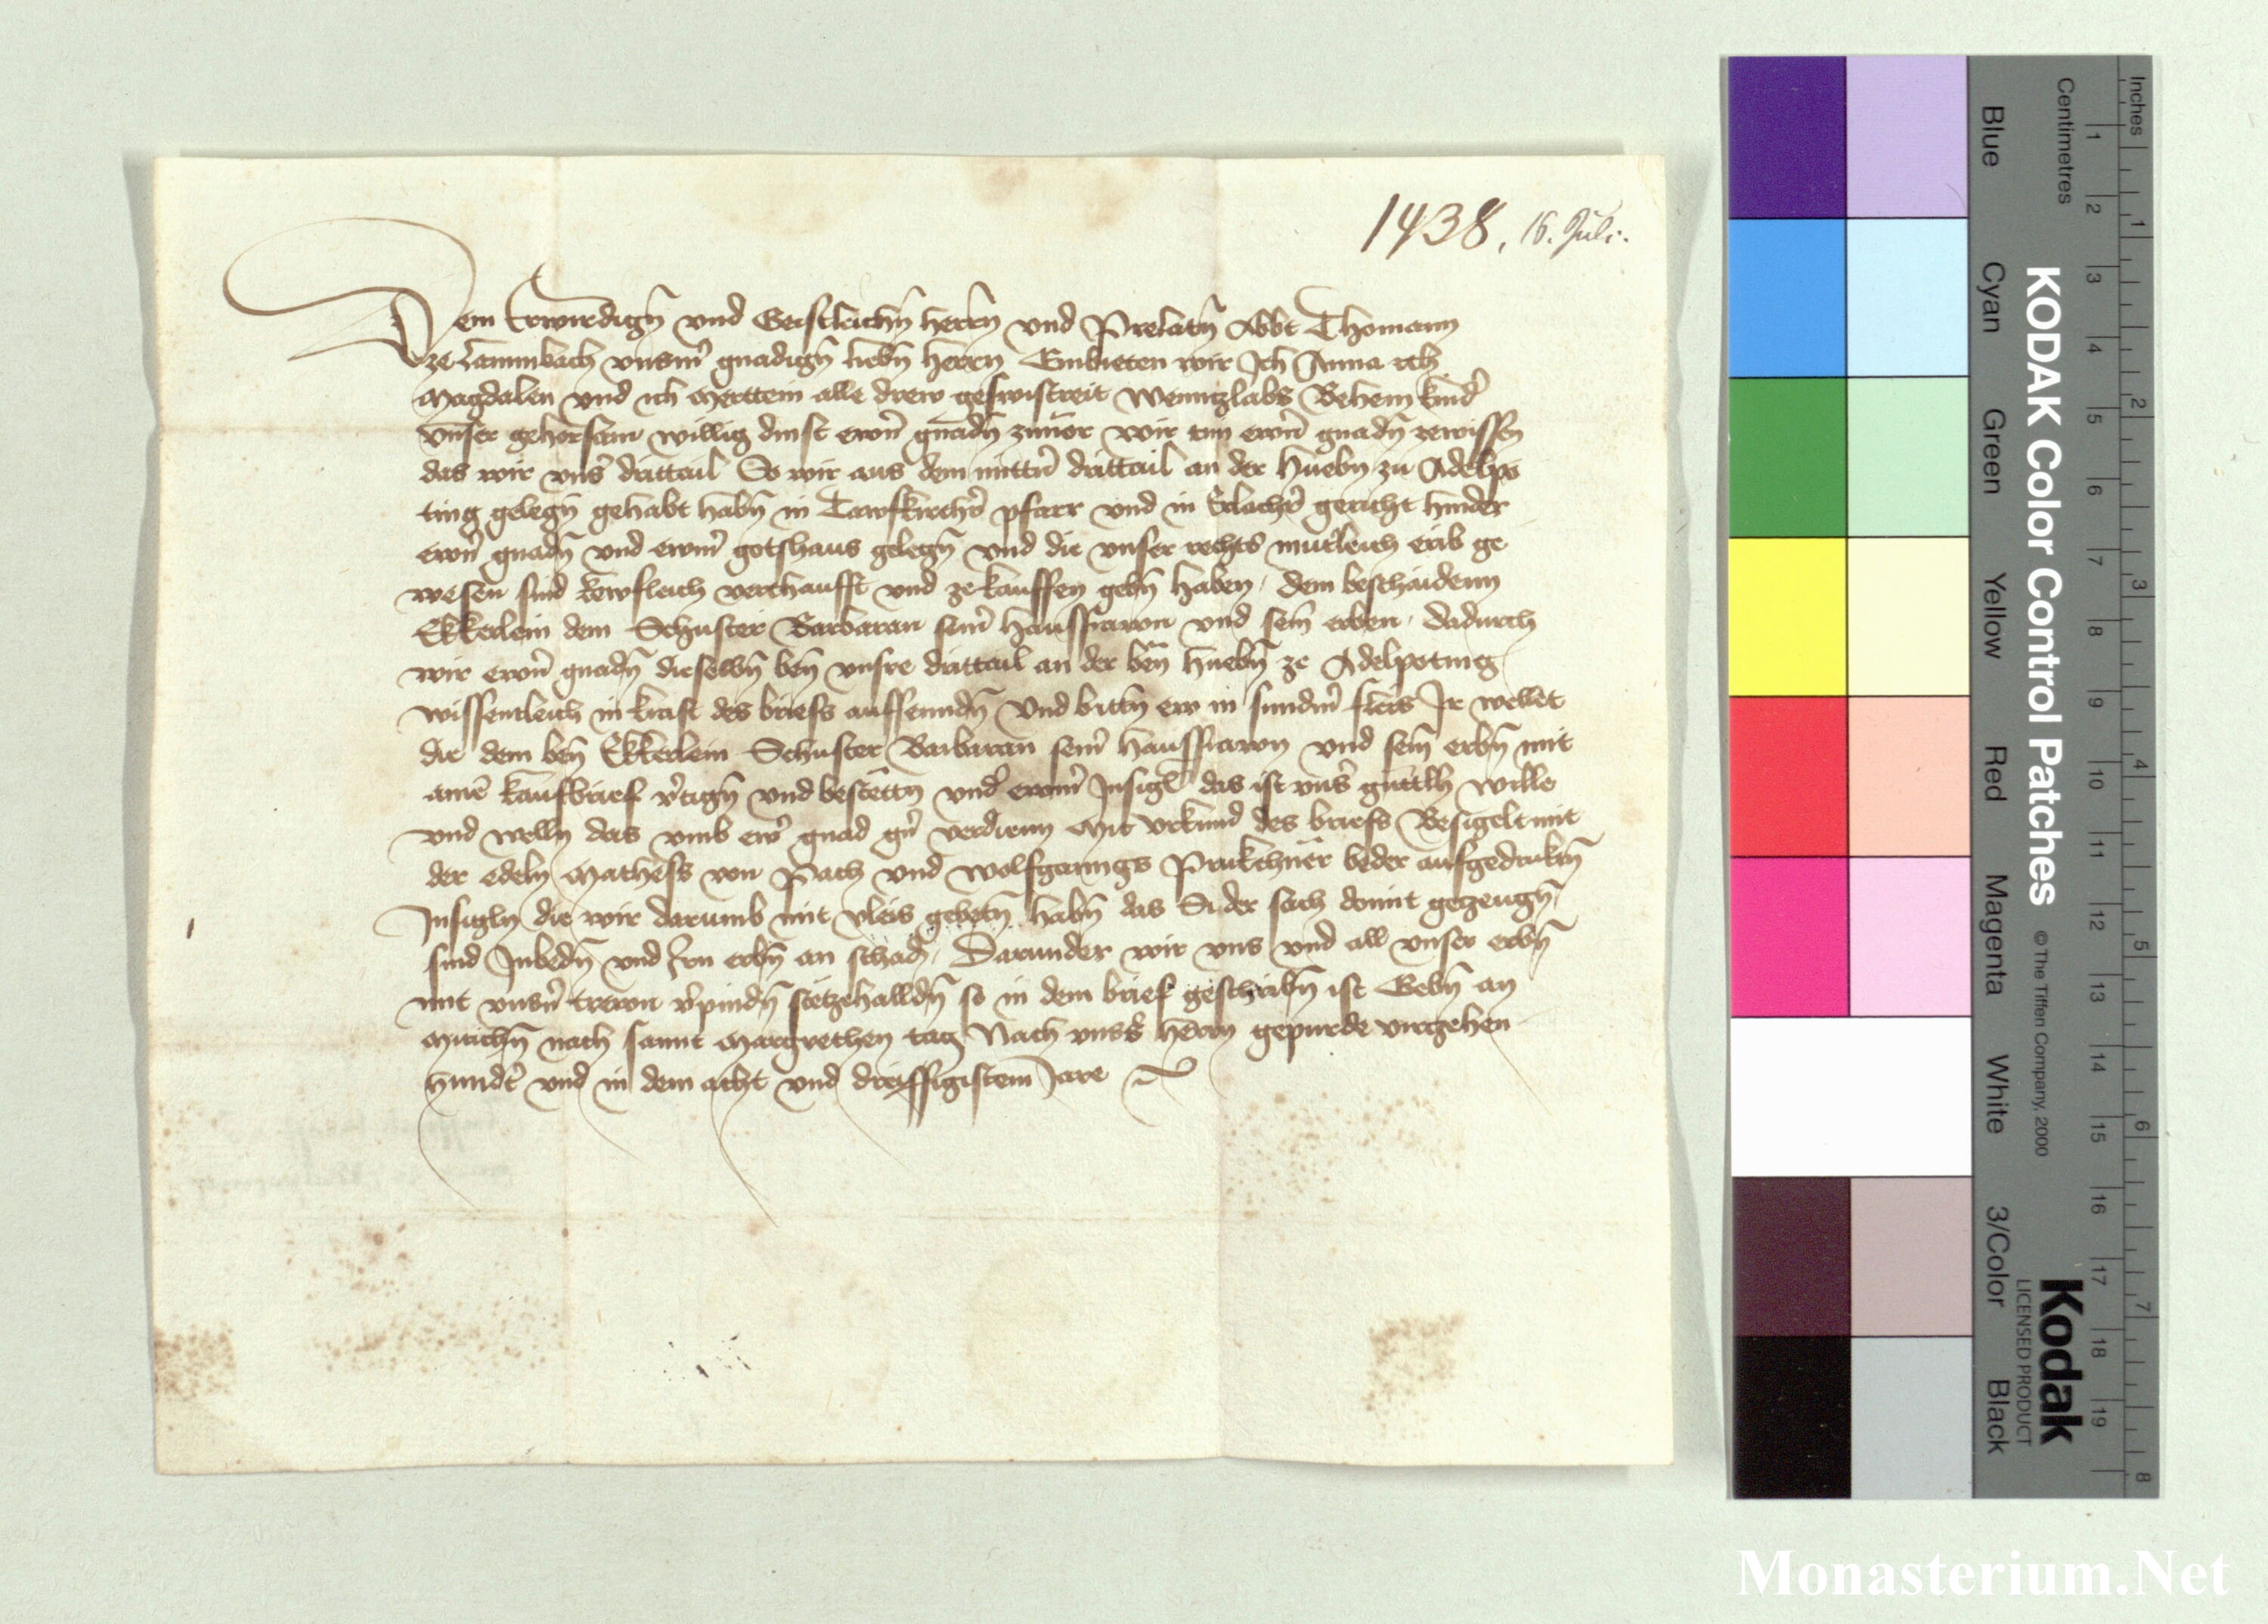 1438. 16. Juli.
Dem Erwirdign̄ vnd Geistleichn̄ herrn̄ vnd Prelatn̄ Abbt Thomann
ze Lammbach vnserm̄ gnadign̄ liebn̄ herrn Embieten wir Ich Anna ich
Magdalen vnd ich Merttein alle drew geswistreit Wenntzlabs Behem kind̄
vnser gehorsam willig dinst ewrn̄ gnadn̄ zuuor wir tun ewrn̄ gnadn̄ zewissen
das wir vns̄ drittail So wir aus dem mittn̄ drittail an der huebn zu Adelpo
ting gelegn̄ gehabt habn̄ in Tawfkirchr̄ pfarr vnd in Erlachr̄ gericht hinder
ewrn̄ gnadn̄ vnd ewrm̄ gotshaus gelegn̄ vnd die vnser rechts mutleich erib ge
wesen sind kewfleich verchaufft vnd ze kauffen gebn̄ haben dem beschaidenn
Ekkerlein dem Schuster Barbaran seinr̄ hausfrawn vnd sein̄ erben dadurch
wir ewrn̄ gnadn̄ dieselbn̄ ben̄ vnsre drittail an der ben̄ huebn̄ ze Adelpoting
wissentleich in kraft des briefs aufsenndn̄ Vnd bittn̄ ew in sundrm̄ fleis Ir wellet
die dem ben̄ Ekkerlein Schuster Barbaran seinr̄ hausfrawn vnd sein̄ erbn̄ mit
ainē kaufbrief v̄tign̄ vnd bestettn̄ vnd̄ ewrm̄ Insigl̄ das ist vns̄ gutlh̄ wille
vnd welln das vmb ewr̄ gnad gn̄ verdienn Mit vrkund des briefs Besigelt mit
der edeln Mathess von Pach vnd Wolfganngs Prukchner beder aufgedrukn̄
Insigln die wir darumb mit vleis gebetn̄ habn̄ das Si der sach domit getzeugn̄
sind Inbedn̄ vnd Irn erbn̄ an schad̄ Darunder wir vns vnd all vnser erbn̄
mit vnsrn̄ trewn v̄pindn̄ stetzehalldn̄ so in dem brief geschribn̄ ist Gebn̄ an
Mitichn̄ nach sannt Margrethen tag Nach vnsr̄s herrn gepurde virczehen
hundt̄ vnd in dem acht vnd dreissigistem Jare
KODAK Color Control Patches
© The Tiffen Company, 2000
Kodak
LICENSED PRODUCT
Inches 1 2 3 4 5 6 7 8
Centimetres 1 2 3 4 5 6 7 8 9 10 11 12 13 14 15 16 17 18 19
Blue Cyan Green Yellow Red Magenta White 3/Color Black
Monasterium.Net